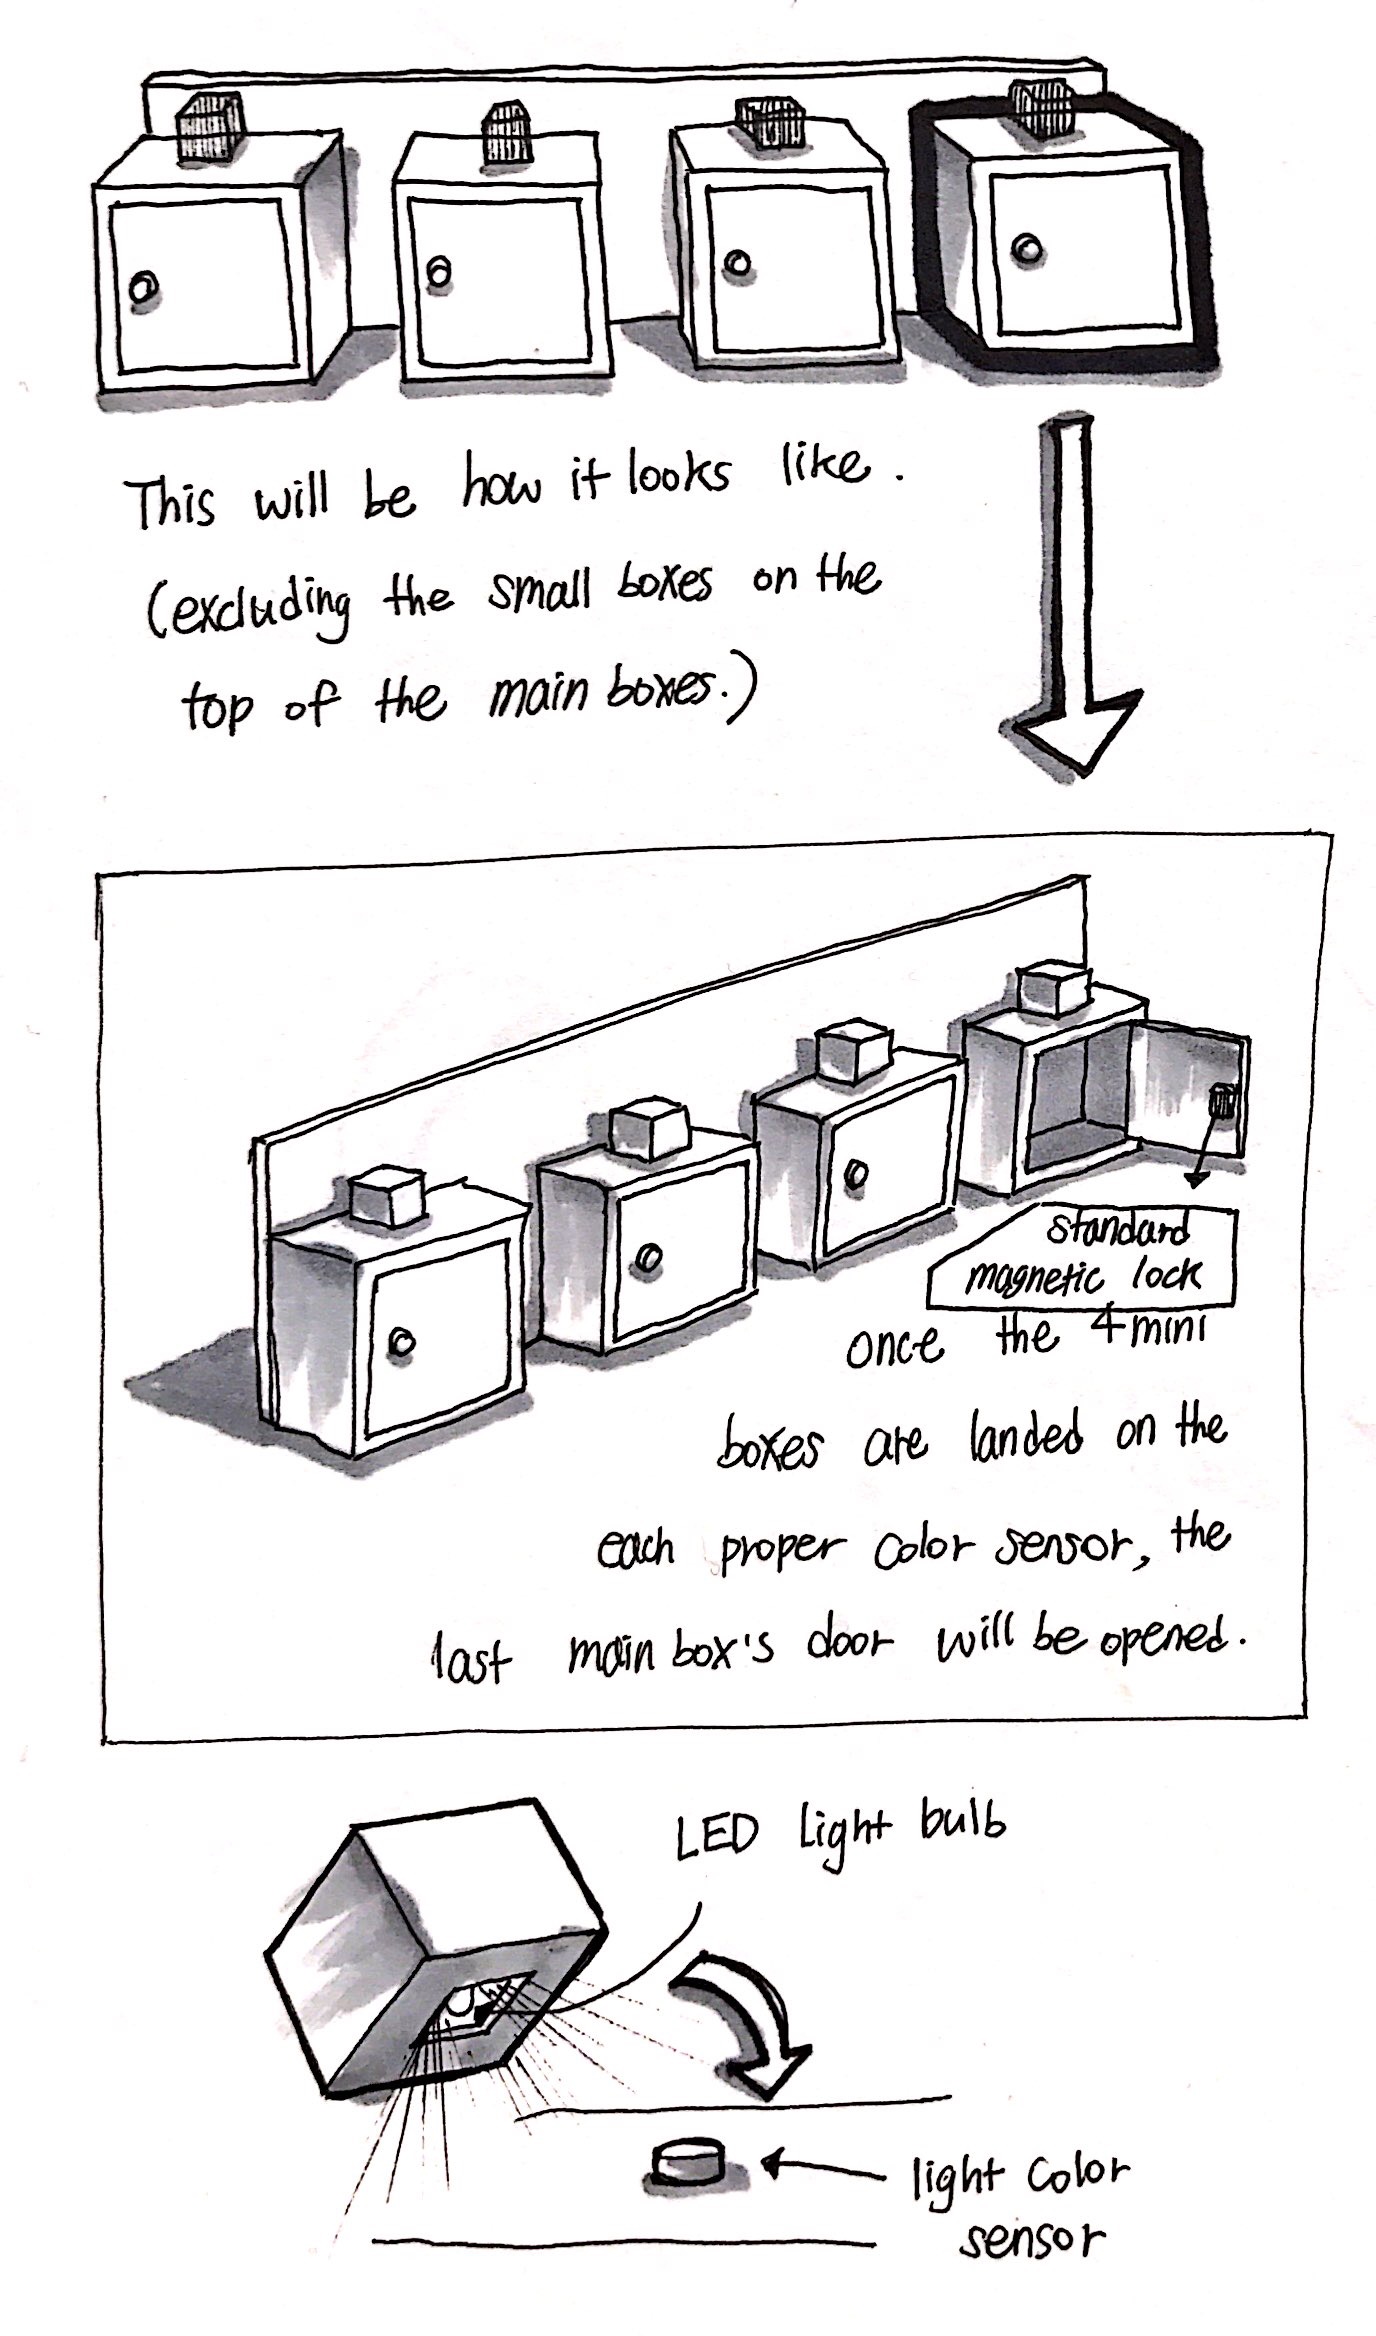 This will be how it looks like.
(excluding the small boxes on the
top of the main boxes.)
standard
magnetic lock
once the 4 mini
boxes are landed on the
each proper color sensor, the
last main box's door will be opened.
LED light bulb
light color
sensor